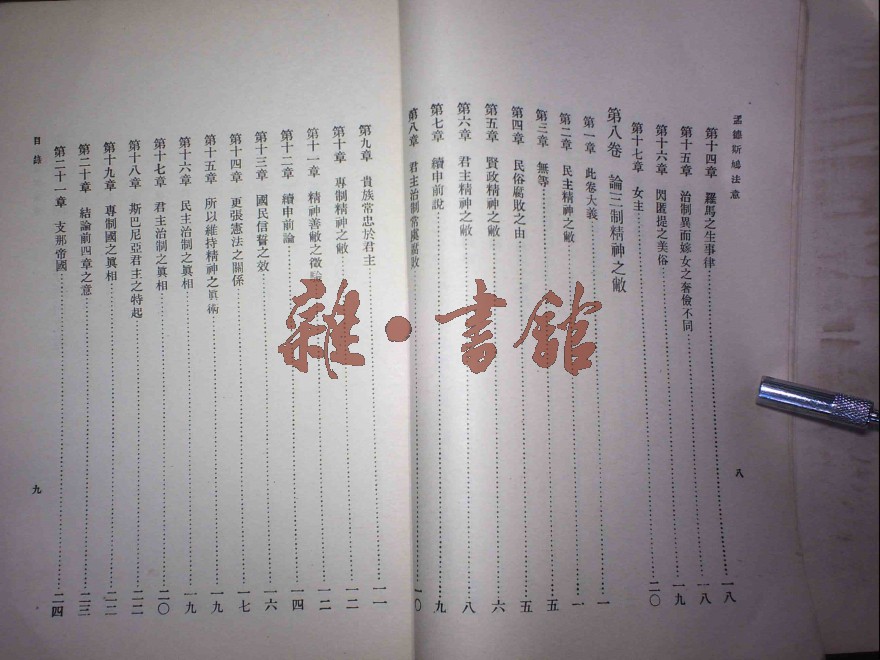 孟德斯鳩法意
第十四章 羅馬之生事律 一八
第十五章 治制異而嫁女之奢儉不同 一八
第十六章 閃匿提之美俗 一九
第十七章 女主 二〇
第八卷 論三制精神之敝
第一章 此卷大義 一
第二章 民主精神之敝 一
第三章 無等 五
第四章 民俗腐敗之由 五
第五章 賢政精神之敝 六
第六章 君主精神之敝 八
第七章 續申前說 九
第八章 君主治制常虞腐敗 一〇
八
第九章 貴族常忠於君主 一一
第十章 專制精神之敝 一二
第十一章 精神善敝之徵驗 一二
第十二章 續申前論 一四
第十三章 國民信誓之效 一六
第十四章 更張憲法之關係 一七
第十五章 所以維持精神之眞術 一九
第十六章 民主治制之眞相 一九
第十七章 君主治制之眞相 二〇
第十八章 斯巴尼亞君主之特起 二二
第十九章 專制國之眞相 二二
第二十章 結論前四章之意 二三
第二十一章 支那帝國 二四
目錄
九
雜·書館